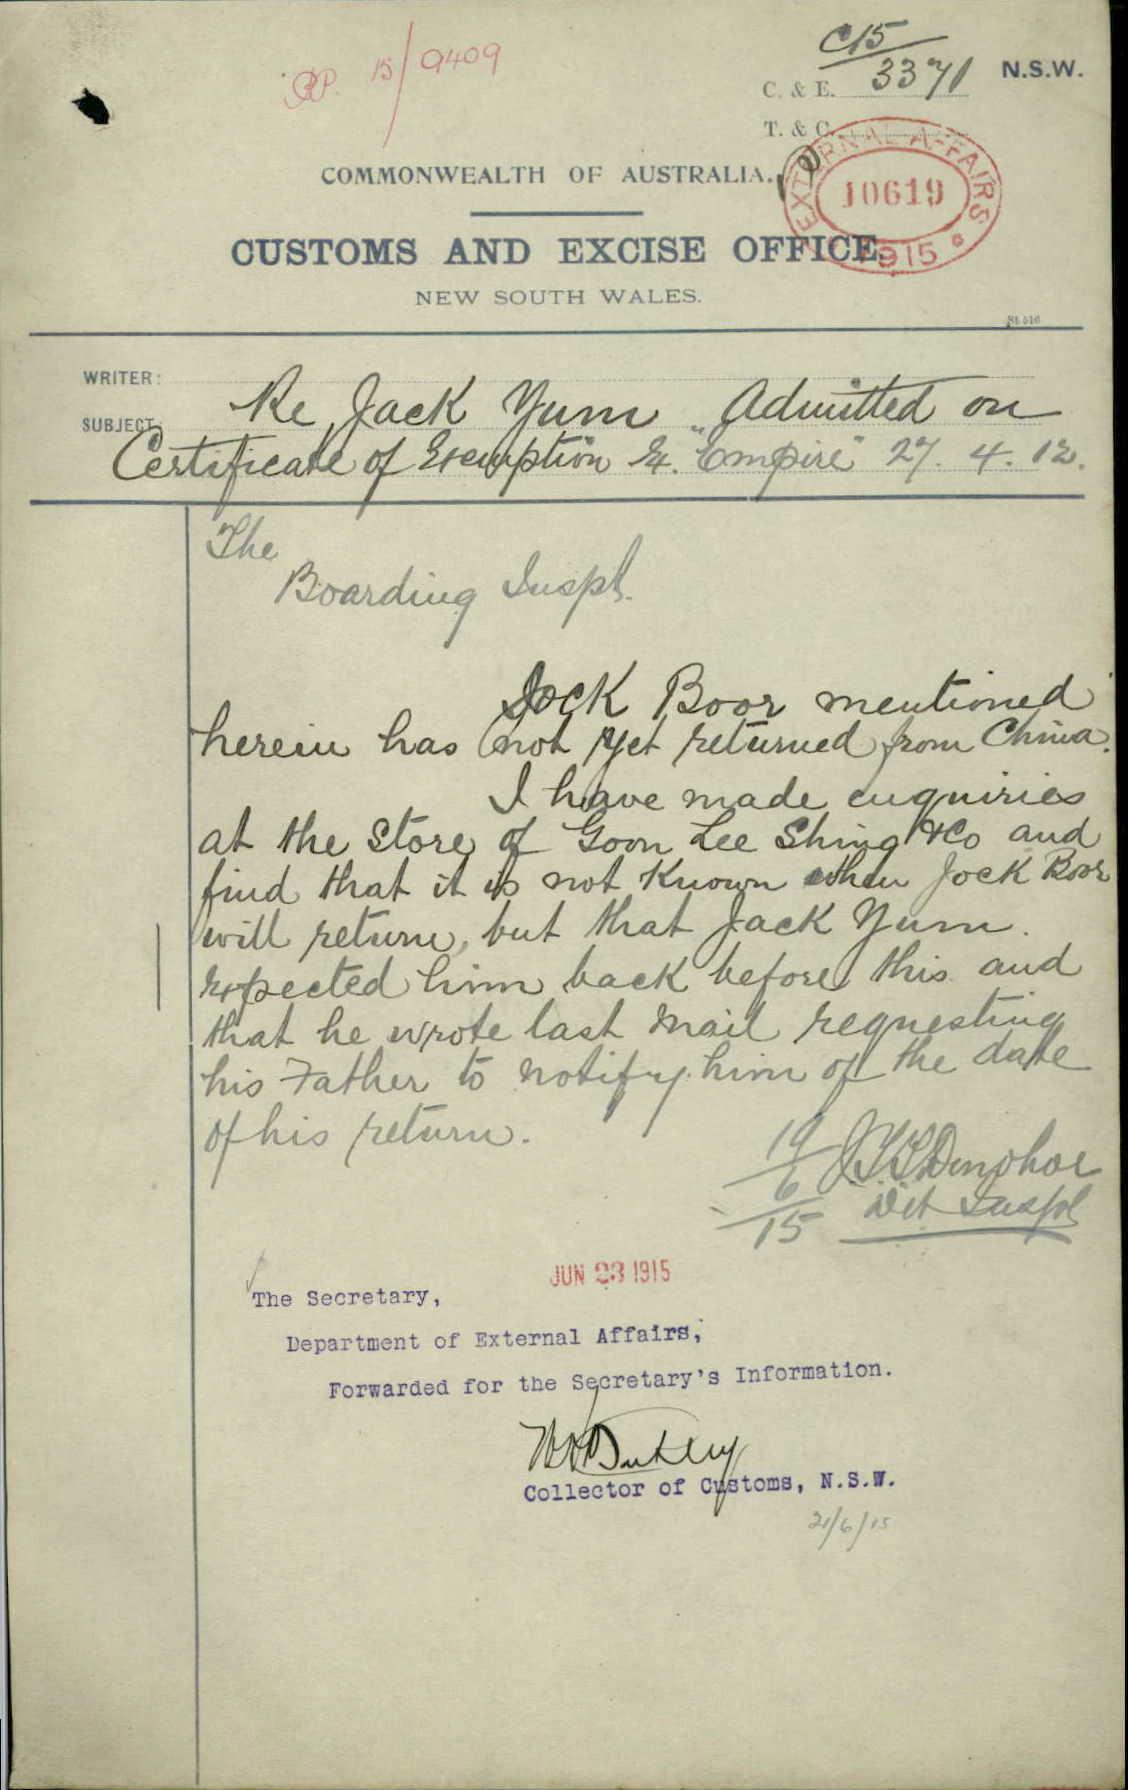 15/9409
C15
C. & E. 3371 N.S.W.
T. & C.
EXTERNAL AFFAIRS
10619
1915
COMMONWEALTH OF AUSTRALIA.
CUSTOMS AND EXCISE OFFICE,
NEW SOUTH WALES.
WRITER:
SUBJECT: Re Jack Yum Admitted on
Certificate of Exemption Ex. "Empire" 27. 4. 12.
The
Boarding Inspt.
Jock Boor mentioned
herein has not yet returned from China.
I have made enquiries
at the store of Goon Lee Shing & Co and
find that it is not known when Jock Boor
will return, but that Jack Yum.
expected him back before this and
that he wrote last mail requesting
his Father to notify him of the date
of his return.
19/6/15 J.T.T. Donohoe
Det Inspt
JUN 23 1915
The Secretary,
Department of External Affairs,
Forwarded for the Secretary's Information.
Collector of Customs, N.S.W.
21/6/15